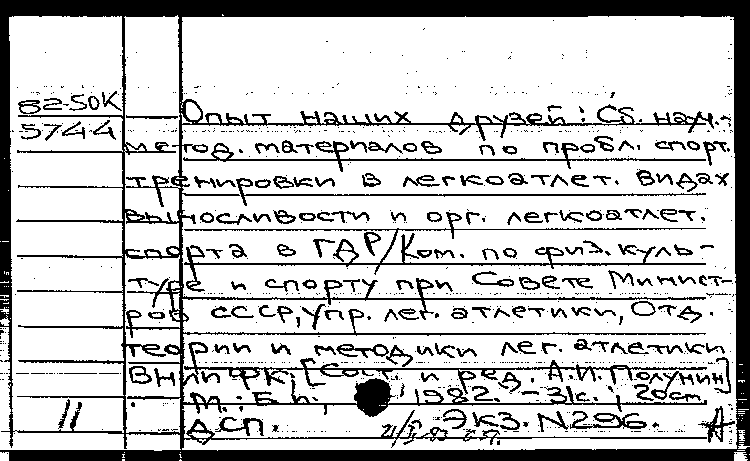 82-50К
5744
Опыт наших друзей: Сб. науч.-
метод. материалов по пробл. спорт.
тренировки в легкоатлет. видах
выносливости и орг. легкоатлет.
спорта в ГДР/Ком. по физ. куль-
туре и спорту при Совете Минист-
ров СССР, Упр. лег. атлетики, Отд.
теории и методики лег. атлетики
ВНИИФК; [Сост. и ред. А.И. Полунин]
. М.: Б.и., 1982. - 31с.; 20см.
ДСП. Экз. N296.
11